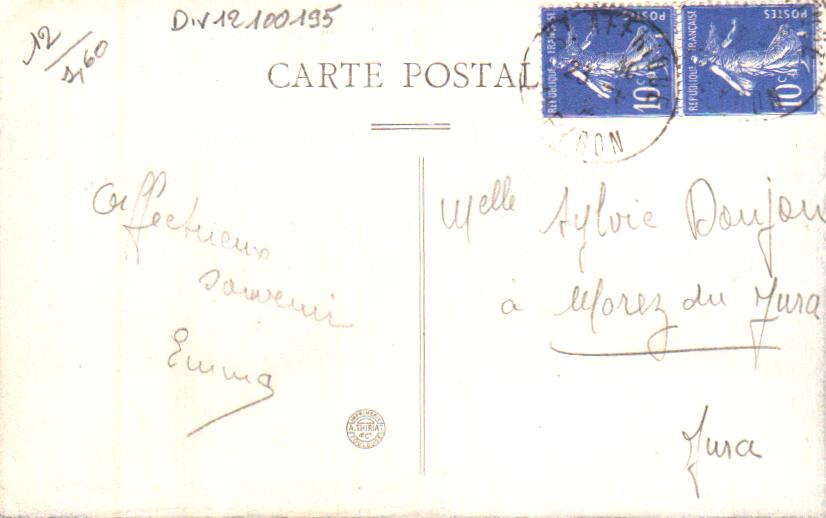 12/3,60
Div12100195
CARTE POSTALE
REPUBLIQUE FRANÇAISE
POSTES
10 c.
REPUBLIQUE FRANÇAISE
POSTES
10 c.
ST AFFRIQUE
AVEYRON
Affectueux
souvenir
Emma
Melle Sylvie Donjon
à Morez du Jura
Jura
IMPRIMERIE
A. THIRIAT
& Cie
TOULOUSE